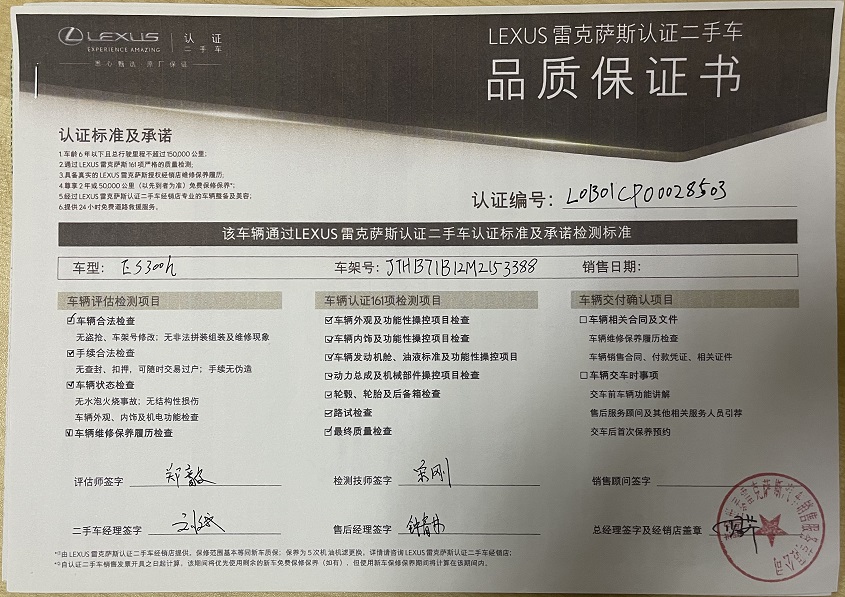 LEXUS
EXPERIENCE AMAZING
认证
二手车
悉心甄选 原厂保证
LEXUS 雷克萨斯认证二手车
品质保证书
认证标准及承诺
1.车龄6年以下且总行驶里程不超过150,000公里;
2.通过LEXUS雷克萨斯161项严格的质量检测;
3.具备真实的LEXUS雷克萨斯授权经销店维修保养履历;
4.尊享2年或50,000公里(以先到者为准)免费保修保养*;
5.经过LEXUS雷克萨斯认证二手车经销店专业的车辆整备及美容;
6.提供24小时免费道路救援服务。
认证编号: L0B01CP00028503
该车辆通过LEXUS雷克萨斯认证二手车认证标准及承诺检测标准
车型: ES300h 车架号: JTHB71B12M2153388 销售日期:
车辆评估检测项目
☑车辆合法检查
无盗抢、车架号修改;无非法拼装组装及维修现象
☑手续合法检查
无查封、扣押,可随时交易过户;手续无伪造
☑车辆状态检查
无水泡火烧事故;无结构性损伤
车辆外观、内饰及机电功能检查
☑车辆维修保养履历检查
车辆认证161项检测项目
☑车辆外观及功能性操控项目检查
☑车辆内饰及功能性操控项目检查
☑车辆发动机舱、油液标准及功能性操控项目
☑动力总成及机械部件操控项目检查
☑轮毂、轮胎及后备箱检查
☑路试检查
☑最终质量检查
车辆交付确认项目
☐车辆相关合同及文件
车辆维修保养履历检查
车辆销售合同、付款凭证、相关证件
☐车辆交车时事项
交车前车辆功能讲解
售后服务顾问及其他相关服务人员引荐
交车后首次保养预约
评估师签字 郑毅 检测技师签字 刚 销售顾问签字
二手车经理签字 刘 售后经理签字 钟 总经理签字及经销店盖章
*¹由LEXUS雷克萨斯认证二手车经销店提供,保修范围基本等同新车质保;保养为5次机油机滤更换,详情请咨询LEXUS雷克萨斯认证二手车经销店;
*²自认证二手车销售发票开具之日起计算,该期间将优先使用剩余的新车免费保修保养(如有),但使用新车保修保养期间将计算在该期间内。